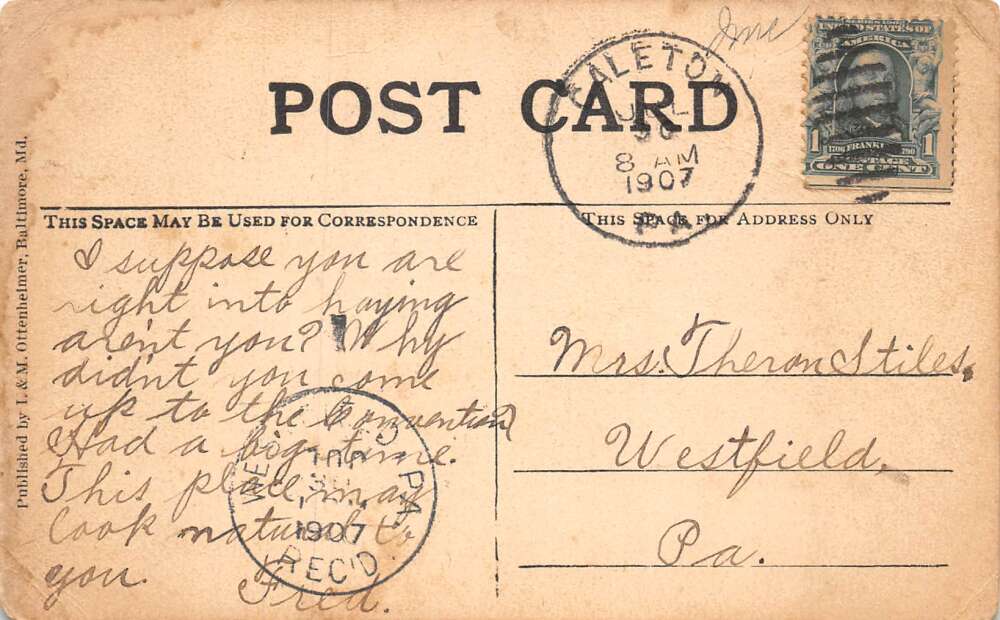 Ime
POST CARD
GALETON
JUL
30
8 AM
1907
PA
UNITED STATES OF
AMERICA
1 1
1706 FRANKLIN 1790
POSTAGE
ONE CENT
Published by I. & M. Ottenheimer, Baltimore, Md.
THIS SPACE MAY BE USED FOR CORRESPONDENCE
THIS SPACE FOR ADDRESS ONLY
I suppose you are
right into haying
aren't you? Why
didn't you come
up to the Convention?
Had a big time.
This place may
look natural to
you. Fred.
WESTFIELD PA.
30
1907
REC'D.
Mrs. Theron Stiles,
Westfield,
Pa.